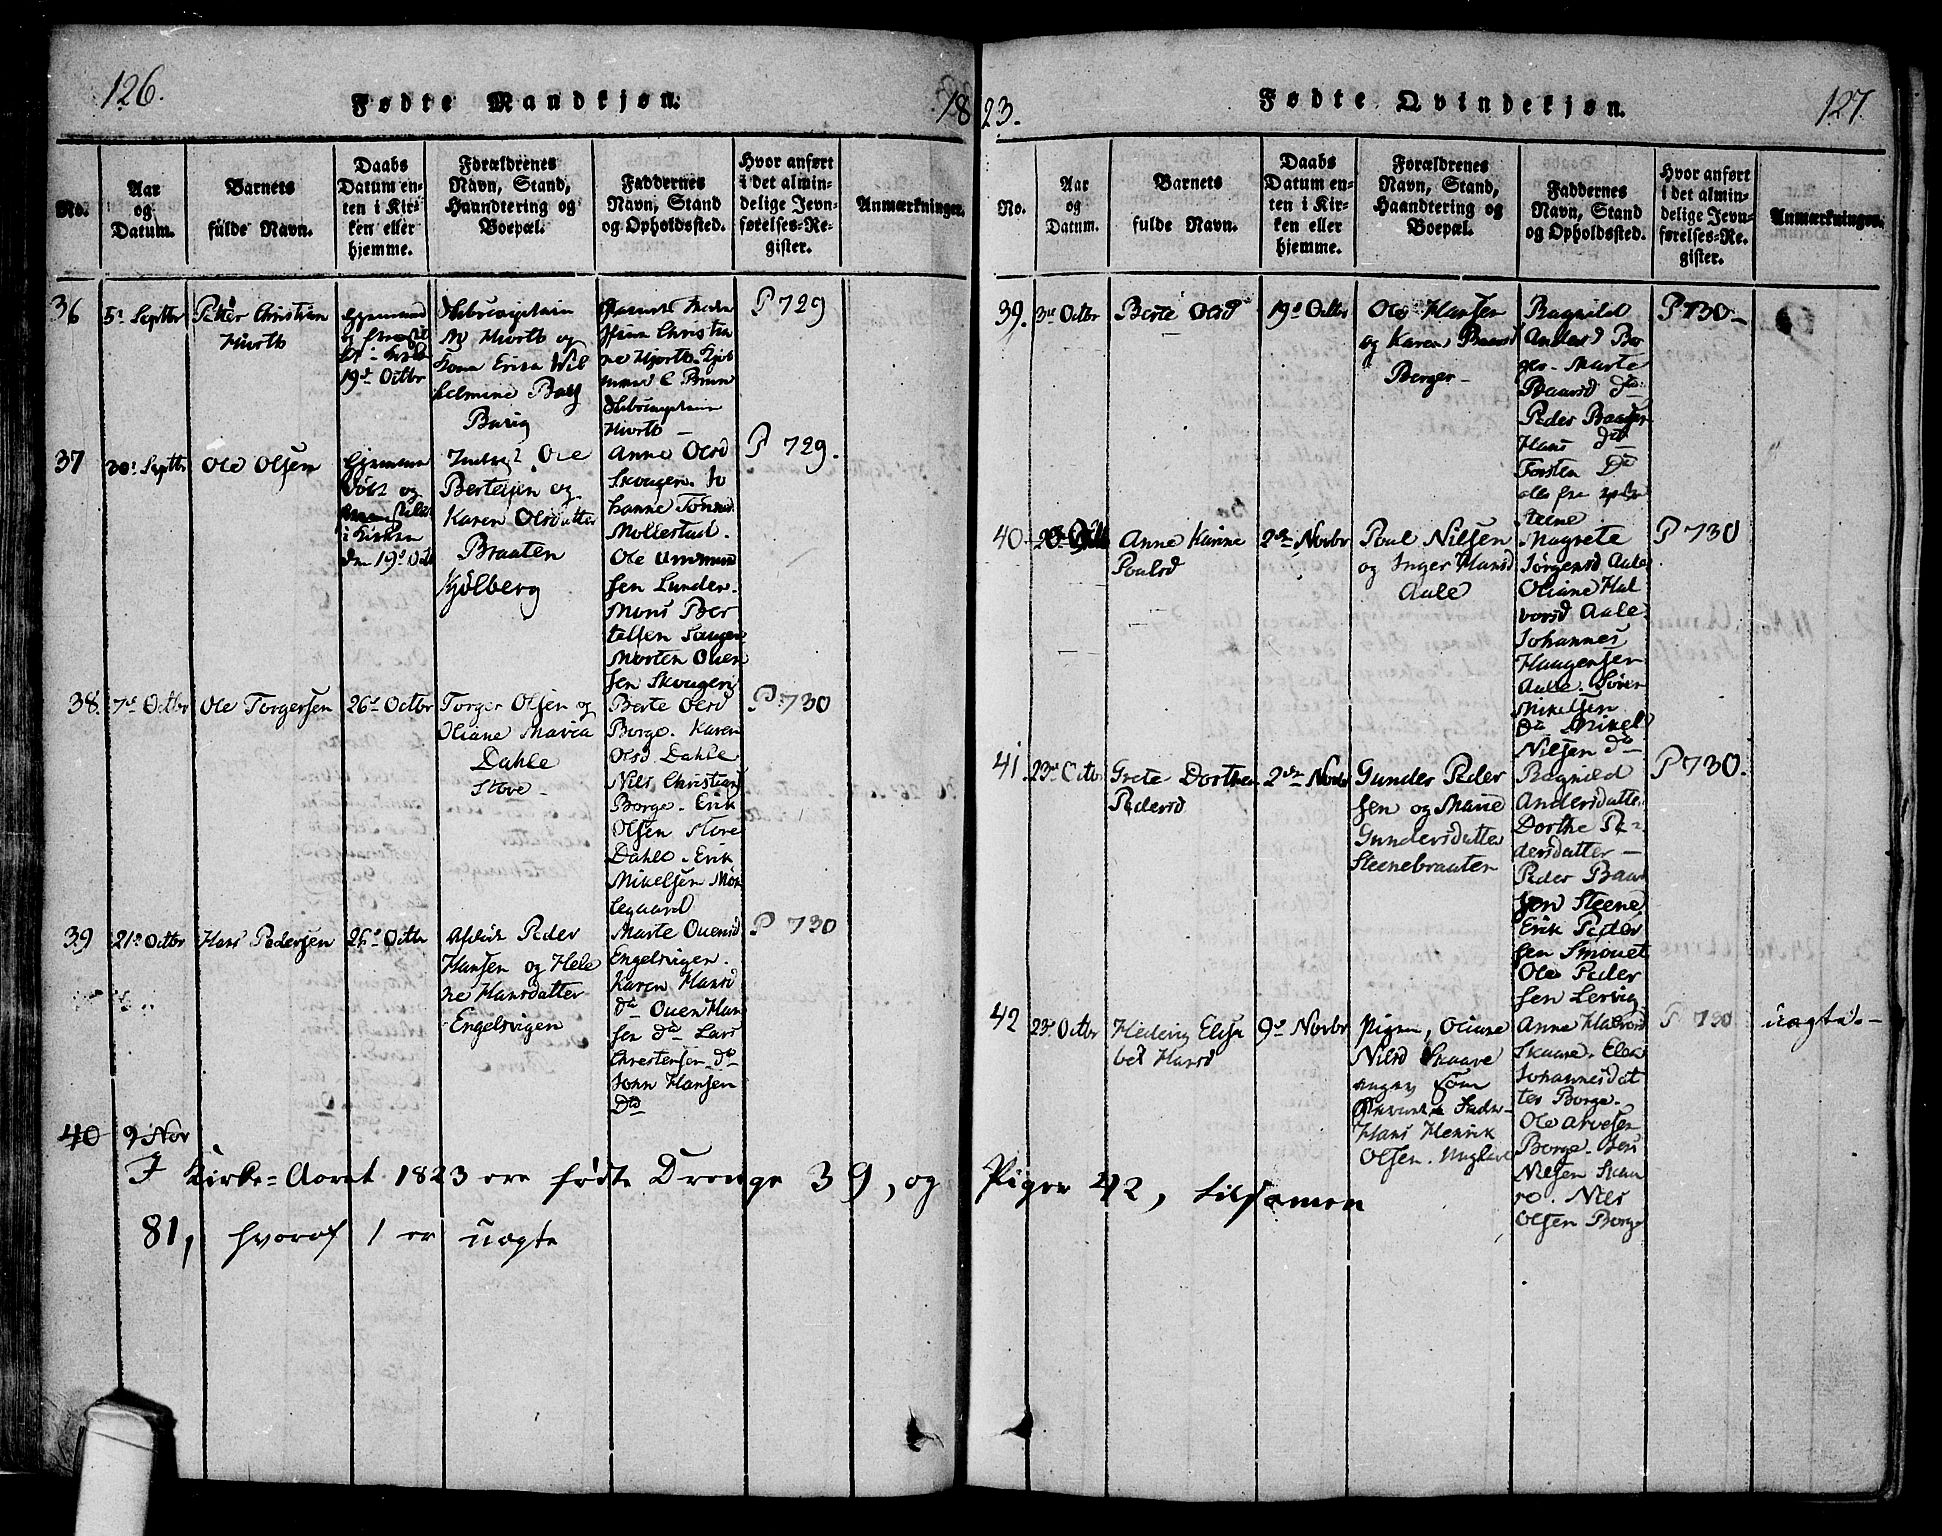 126.
Fødte Mandkjøn.
1823.
No.
Aar
og
Datum.
Barnets
fulde Navn.
Daabs
Datum en-
ten i Kir-
ken eller
hjemme.
Forældrenes
Navn, Stand,
Haandtering og
Boepæl.
Faddernes
Navn, Stand
og Opholdssted.
Hvor anført
i det almin-
delige Jevn-
førelses-Re-
gister.
Anmærkninger.
36
5te Septbr
Peter Christian
Hiorth
i Kirken
19de Octbr
Hiorth og
Erika Wil
helmine
Christia
ne Hjorth
Hiorth
P 729
37
30te Septbr
Ole Olsen
Hjemme
døbt og
i Kirken
den 19de Octb
Ole
Bertelsen og
Karen Olsdatter
Braaten
Kjølberg
Anne Olsd
Skougen. Jo
hanne
Mollestad.
Ole Ammun
sen Lunder.
Mons Ber
telsen Haugen
Morten Ouen
sen Skougen
P 729.
38.
7de Octbr
Ole Torgersen
26de Octbr
Torger Olsen og
Oliane Maria
Dahle
Store
Berte Olsd
Borge. Karen
Olsd. Dahle
Nils Christians
Borge. Erik
Olsen Store
Dahle. Erik
Mikelsen Mør
legaard
P 730
39
21de Octbr
Hans Pedersen
26de Octbr
Peder
Hansen og Hele
ne Hansdatter
Engelsvigen
Marte Ouensd
Engelsvigen.
Karen Hansd
do Ouen Han
sen do Lars
Christensen do
John Hansen
Do
P 730
40
9 Nov
I Kirke-Aaret 1823 ere fødte Drenge 39, og
81, hvoraf 1 er uægte
Fødte Qvindekjøn.
127
No.
Aar
og
Datum.
Barnets
fulde Navn.
Daabs
Datum en-
ten i Kir-
ken eller
hjemme.
Forældrenes
Navn, Stand,
Haandtering og
Boepæl.
Faddernes
Navn, Stand
og Opholdssted.
Hvor anført
i det almin-
delige Jevn-
førelses-Re-
gister.
Anmærkninger.
39.
3die Octbr
Berte Olsd
19de Octbr
Ole Hansen
og Karen Baarsd
Borger
Ragnild
Andersd Bor
ger. Marte
Baarsd do
Peder Baarsen
Hans do
Torsten Do
alle fra
Steene
P 730
40.
Anne Karine
Poulsd
2den Novbr
Poul Nilsen
og Inger Hansd
Aale
Magrete
Jørgensd Aale
Oliane Hal
vorsd Aale.
Johannes
Haagensen
Aale. Søren
Mikelsen
do Mikel
Nilsen do
P 730
41.
23de Octbr
Grete Dorthea
Pedersd
2den Novbr
Gunder Peder
sen og Marie
Gundersdatter
Steenebraaten
Ragnild
Andersdatter
Dorthe Pe-
dersdatter
Peder Baar
sen Steene
Erik Peder
sen Smouet
Ole Peder
sen Lervig
P 730.
42
23de Octbr
Hedevig Elisa
bet Hansd
9de Novbr
Pigen, Oliane
Nilsd Skaare
som
Hans Henrik
Olsen.
Anne Halvorsd
Skaare. Elen
Johannesdat
ter Borge.
Ole Arvesen
Borge. Jens
Nielsen Skaa
re. Niels
Olsen Borge
P 730
uægte
Piger 42, tilsamen